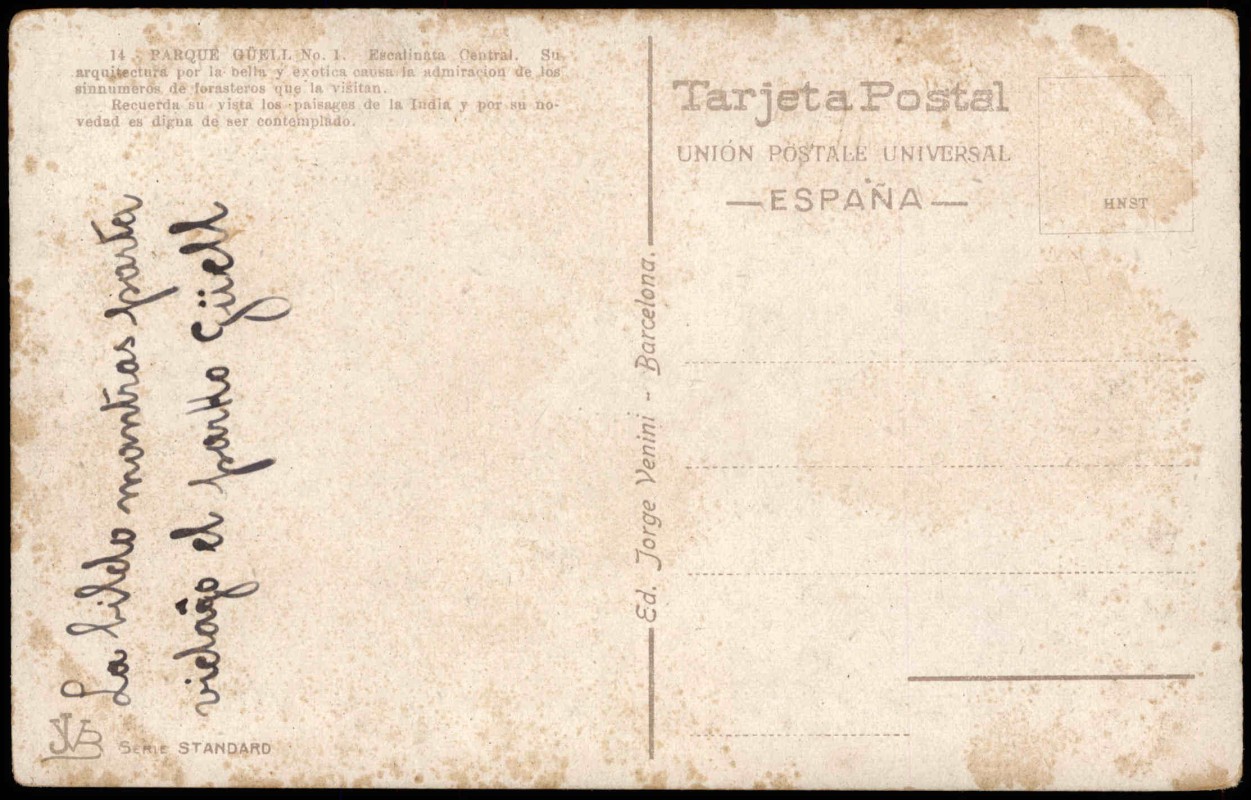 14 PARQUE GÜELL No. 1. Escalinata Central. Su
arquitectura por la bella y exotica causa la admiracion de los
sinnumeros de forasteros que la visitan.
Recuerda su vista los paisages de la India y por su no-
vedad es digna de ser contemplado.
La bildo montras parta
vidaĵo el parko Güell
JVB
Serie STANDARD
Ed. Jorge Venini - Barcelona.
Tarjeta Postal
UNIÓN POSTALE UNIVERSAL
—ESPAÑA—
HNST